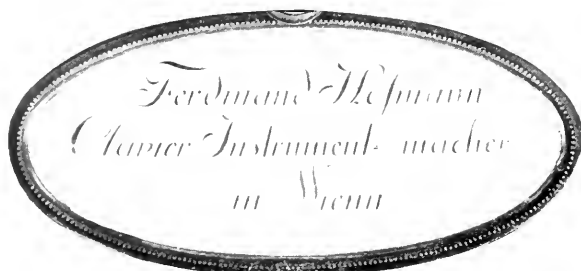 Ferdinand Hofmann
Clavier Instrument macher
in Wienn